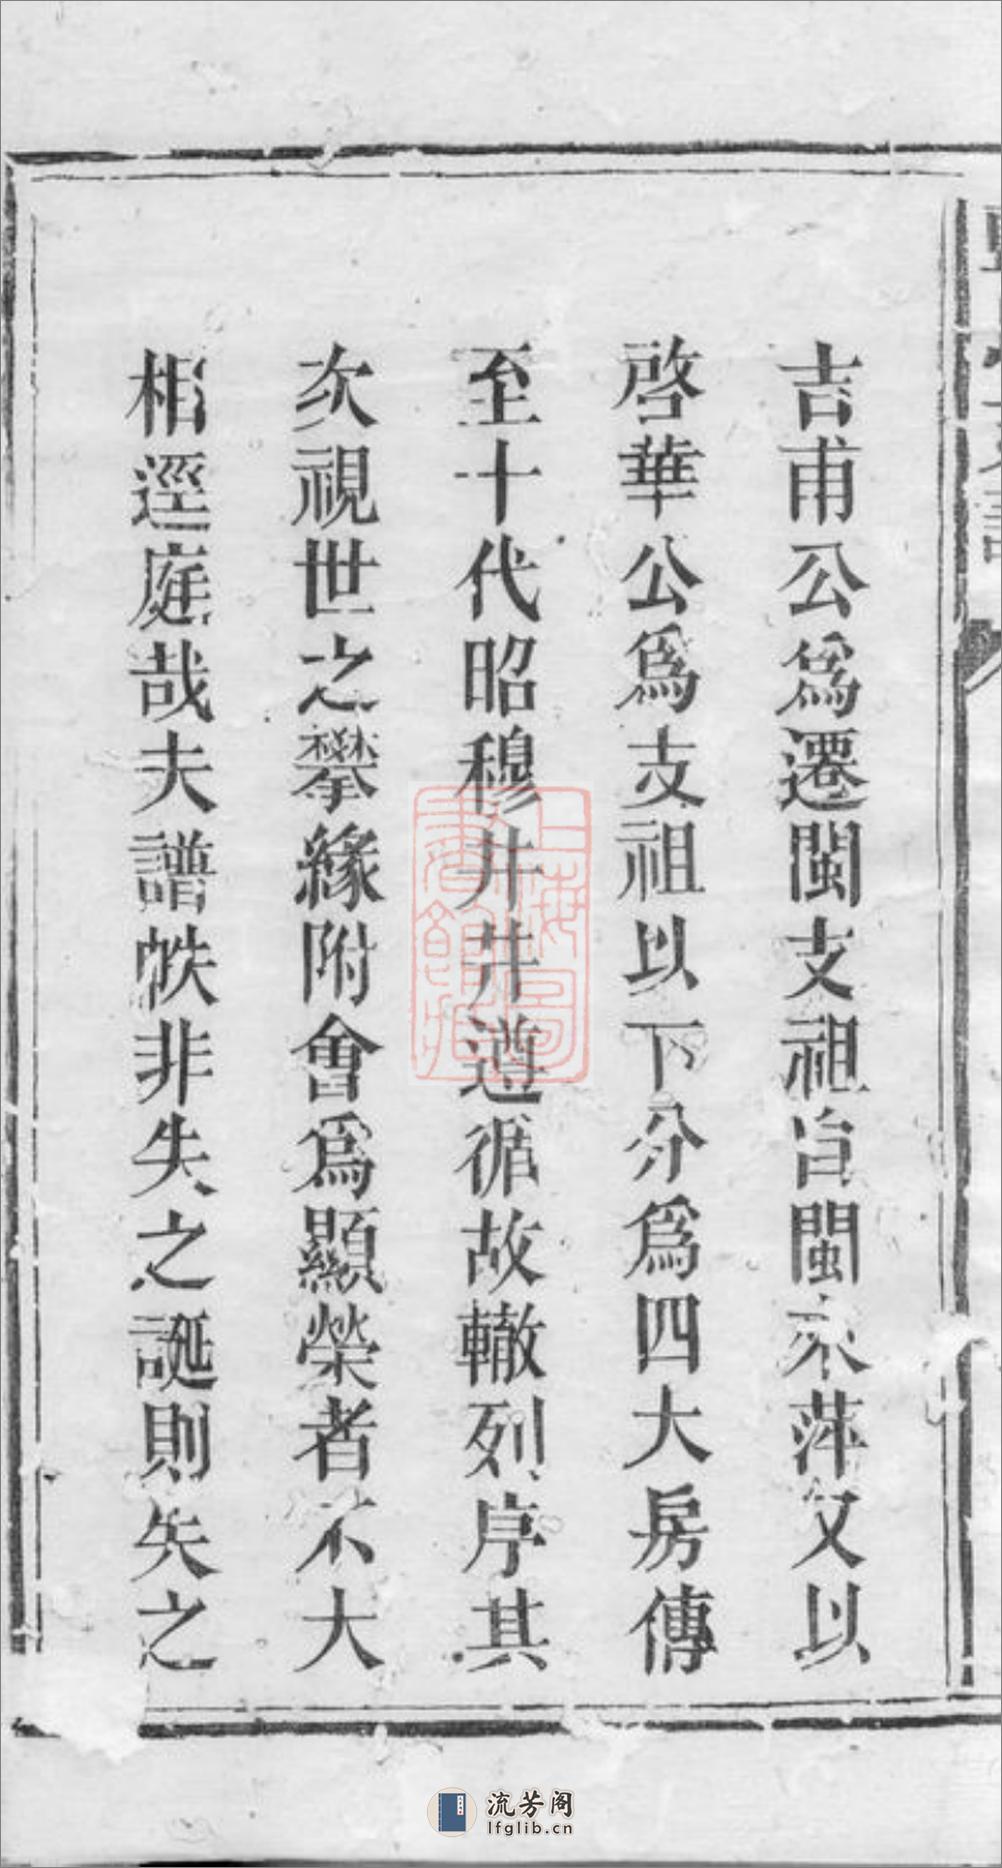 吉甫公為遷閩支祖自閩來萍又以
啓華公爲支祖以下分爲四大房傳
至十代昭穆井井遵循故轍列序其
次視世之攀緣附會爲顯榮者不大
相逕庭哉夫譜帙非失之誕則失之
上海圖書館藏
流芳阁
lfglib.cn